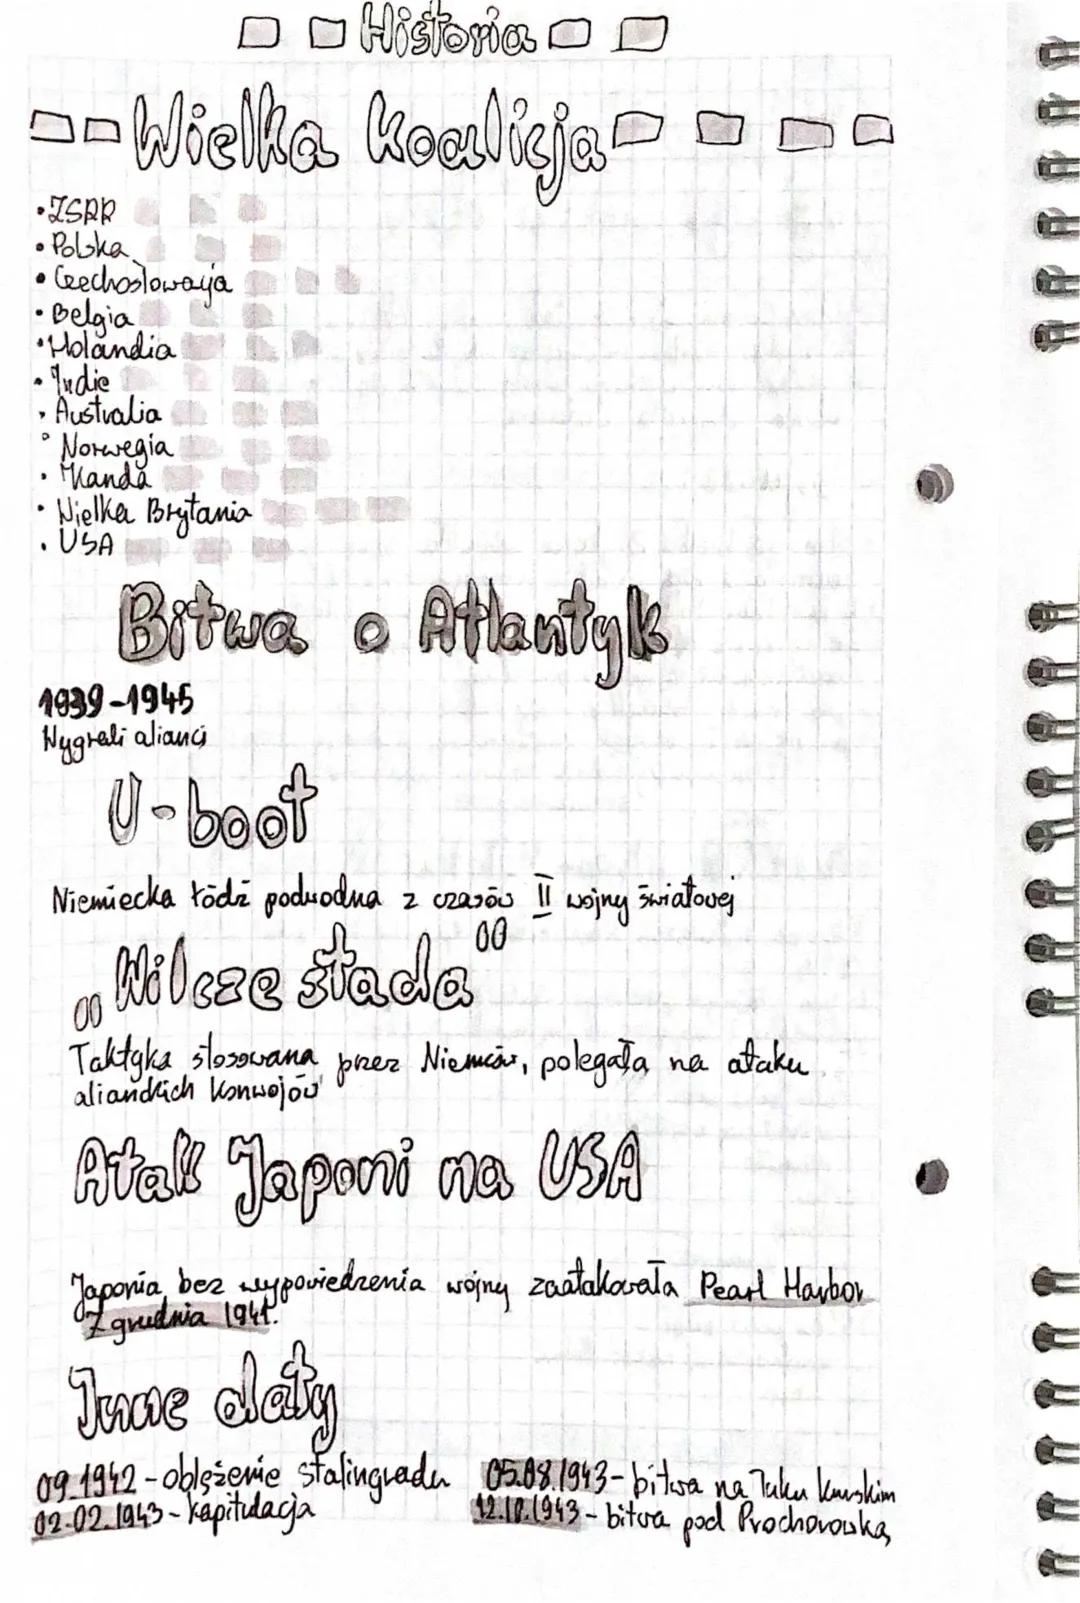 Historia
Wielka Koalicja
• ZSRR
• Polska
• Czechosłowacja
• Belgia
• Holandia
• Indie
• Australia
• Norwegia
• Kanda
• Wielka Brytania
• USA
Bitwa o Atlantyk
1939-1945
Wygrali alianci
U-boot
Niemiecka łódź podwodna z czasów II wojny światowej
„Wilcze stada”
Taktyka stosowana przez Niemców, polegała na ataku
aliandkich konwojów
Atak Japoni na USA
Japonia bez wypowiedzenia wojny zaatakowała Pearl Harbor
7 grudnia 1941.
Inne daty
09.1942 - oblężenie stalingradu
02.02.1943 - kapitulacja
05.08.1943 - bitwa na Łuku kurskim
bitwa pod Prochorowką